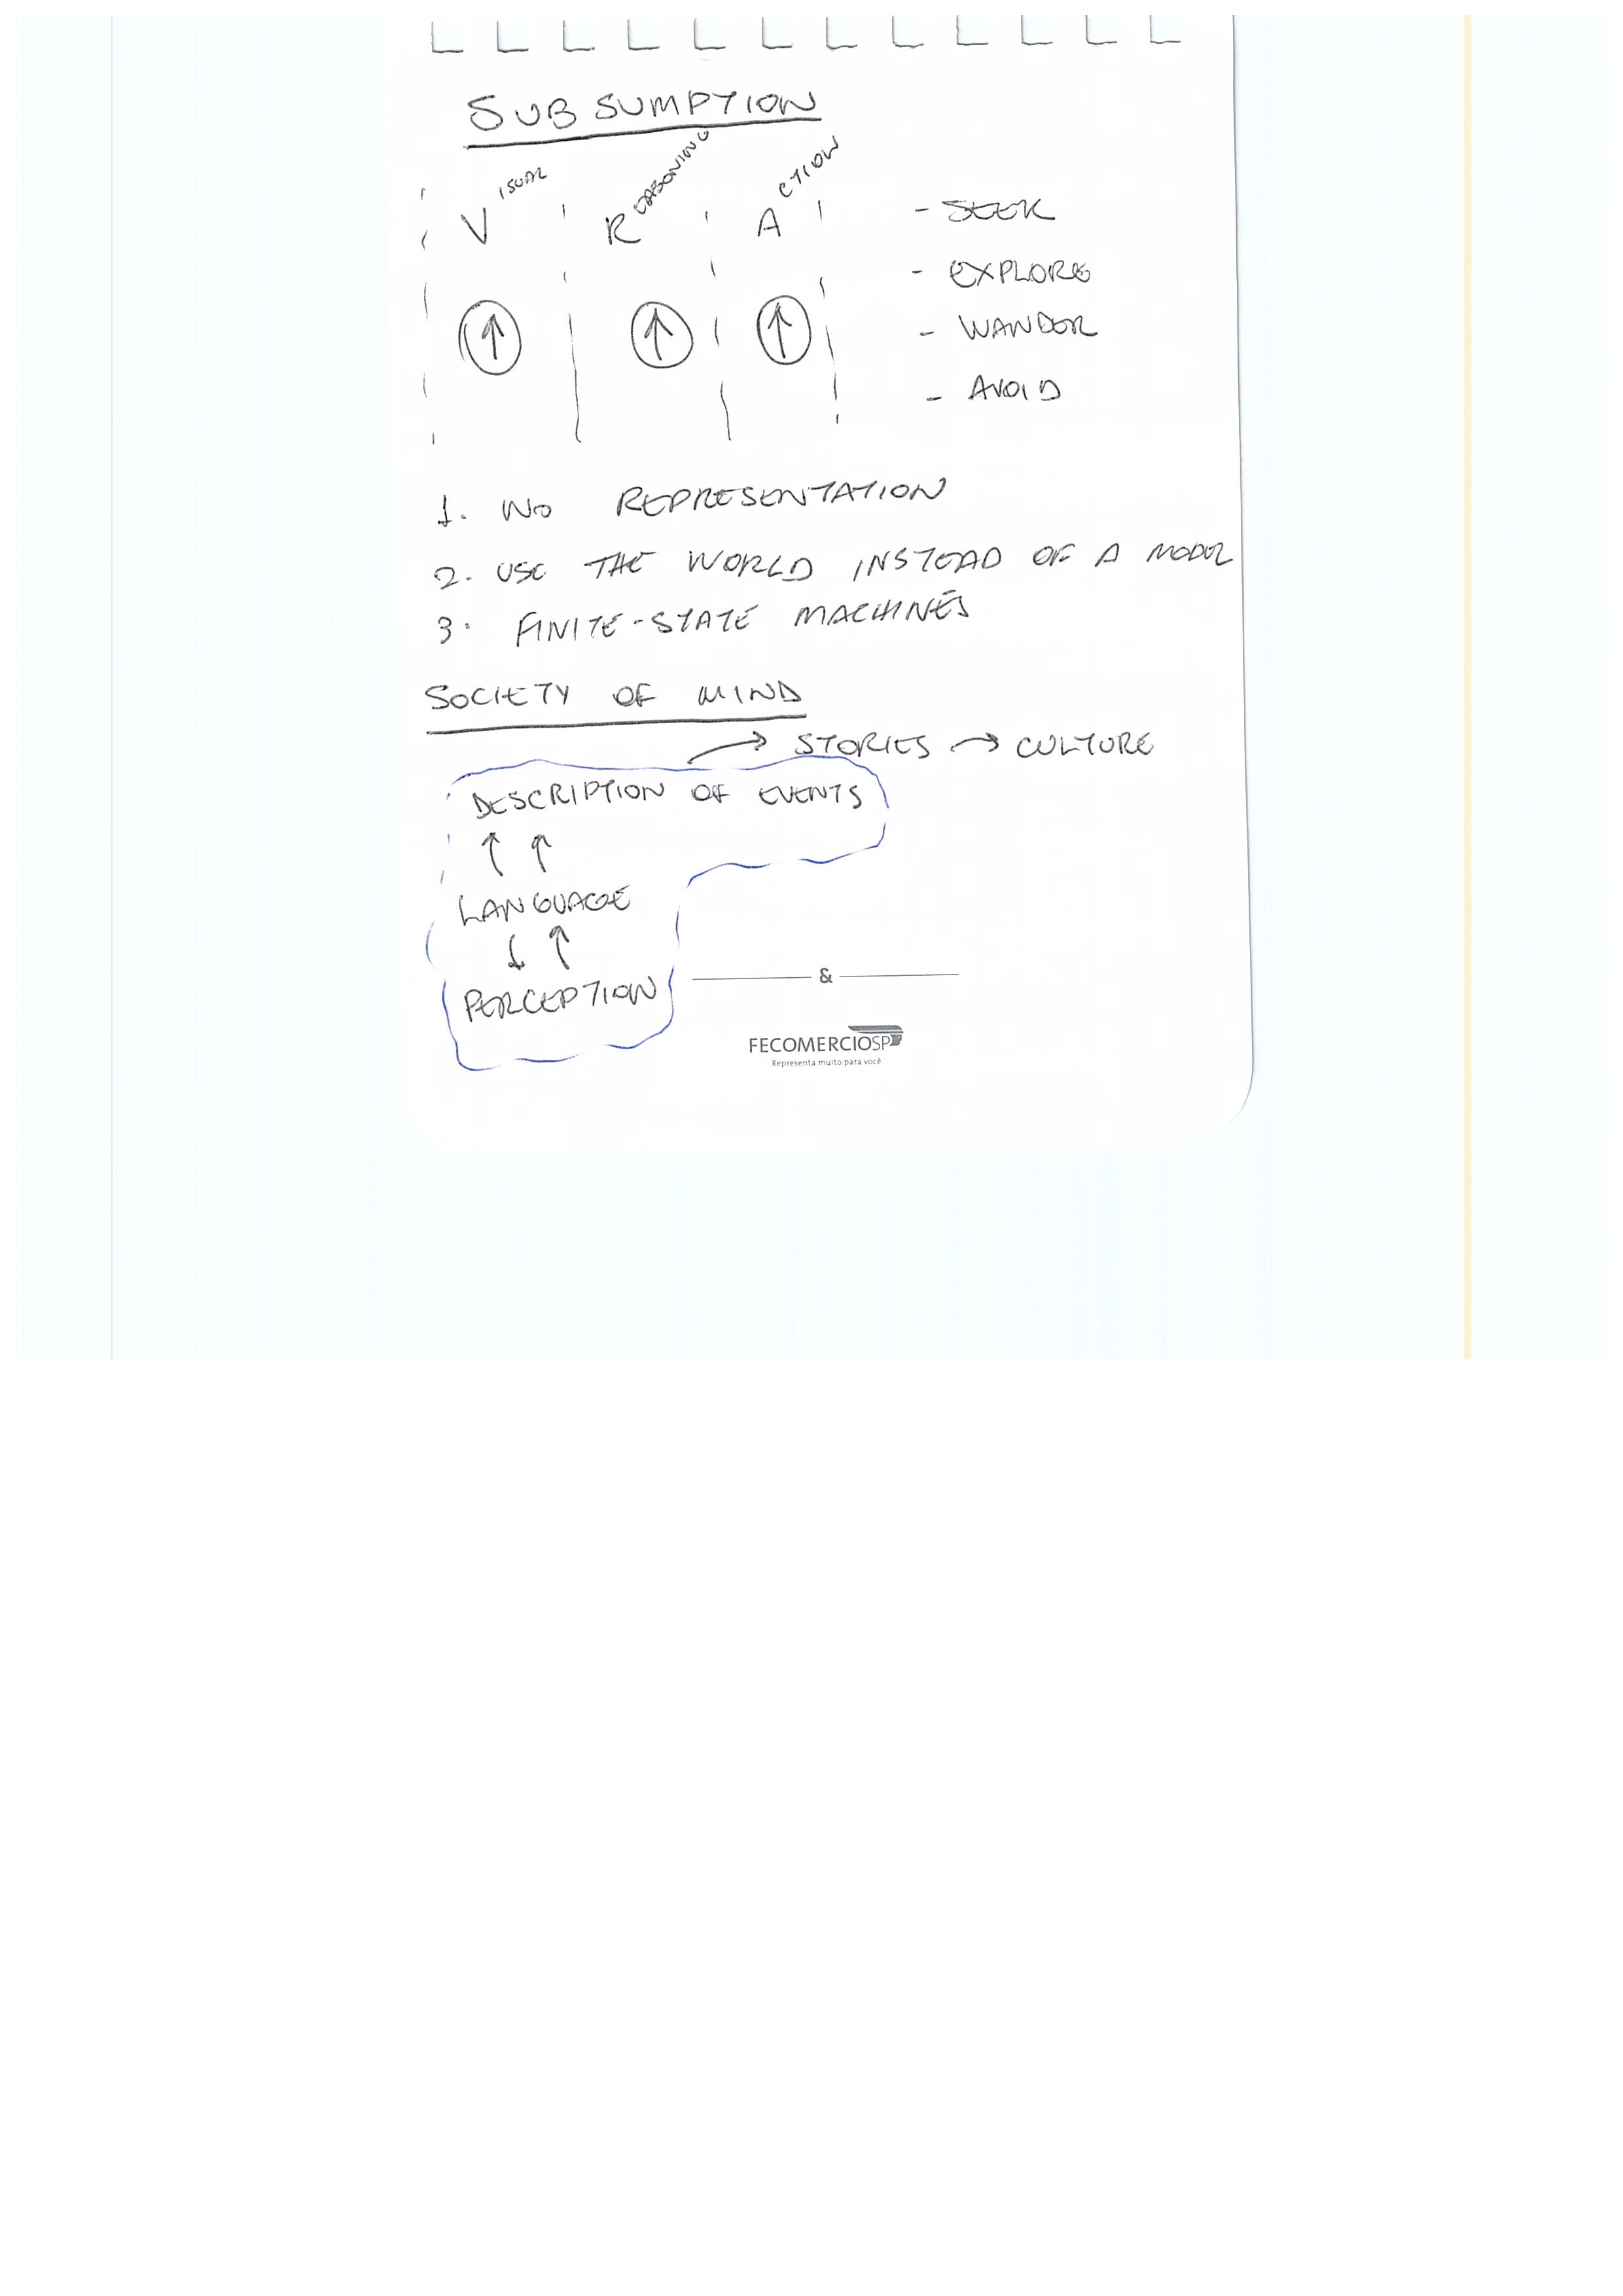 SUBSUMPTION
VISUAL REASONING ACTION
- SEEK
- EXPLORE
- WANDER
- AVOID
1. NO REPRESENTATION
2. USE THE WORLD INSTEAD OF A MODEL
3. FINITE-STATE MACHINES
SOCIETY OF MIND
→ STORIES → CULTURE
DESCRIPTION OF EVENTS
↑ ↑
LANGUAGE
↓ ↑
PERCEPTION
&
FECOMERCIOSP
Representa muito para você.